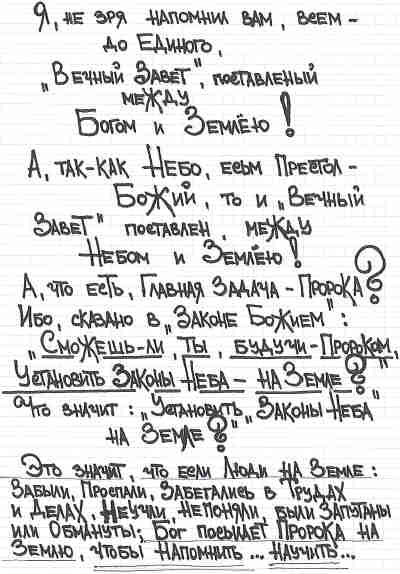 Я, не зря напомнил вам, всем -
до Единого,
„Вечный Завет", поставленый
между
Богом и Землёю!
А, так-как Небо, есьм Престол -
Божий, то и „Вечный
Завет" поставлен, между
Небом и Землёю!
А, что есть, Главная Задача - Пророка?
Ибо, сказано в „Законе Божием":
„Сможешь-ли, ты, будучи - Пророком,
Установить Законы Неба - на Земле?"
Что значит: „Установить „Законы Неба"
на Земле?"
Это значит, что если Люди на Земле:
Забыли, Проспали, Забегались в Трудах
и Делах, Неучли, Непоняли, были Запутаны
или Обмануты; Бог посылает Пророка на
Землю, чтобы Напомнить... Научить...